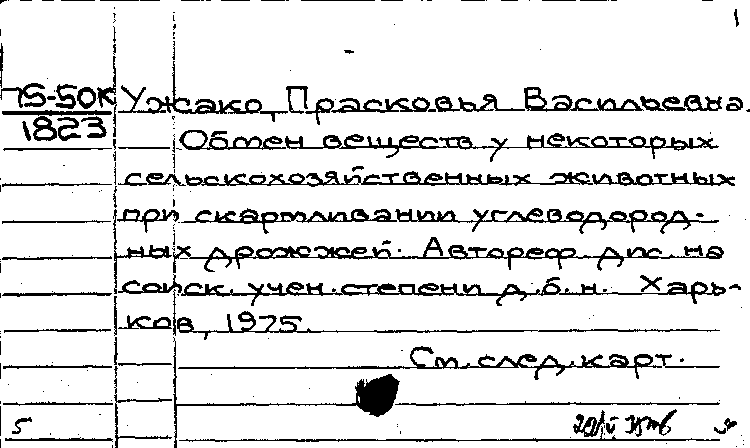 1
75-50к Ужако, Прасковья Васильевна.
1823
Обмен веществ у некоторых
сельскохозяйственных животных
при скармливании углеводород-
ных дрожжей. Автореф. дис. на
соиск. учен. степени д.б.н. Харь-
ков, 1975.
См. след. карт.
5